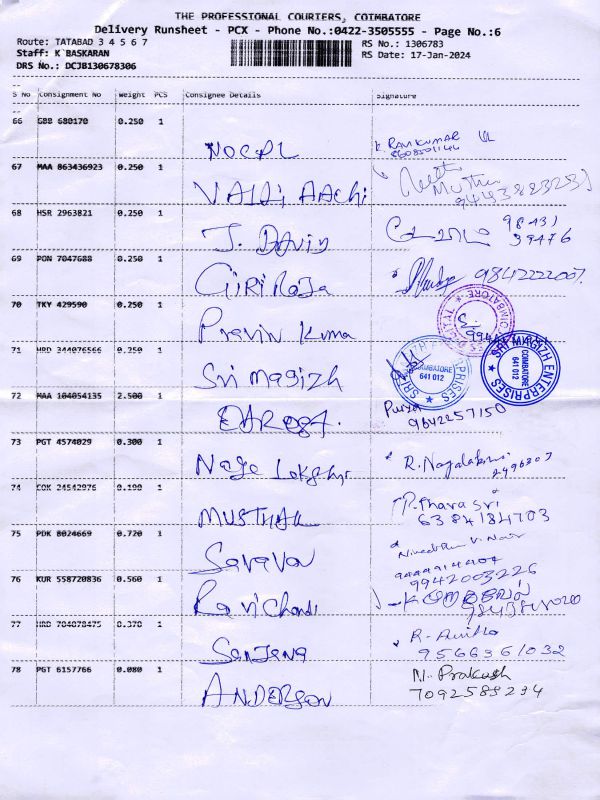 THE PROFESSIONAL COURIERS, COIMBATORE
Delivery Runsheet - PCX - Phone No.:0422-3505555 - Page No.:6
Route: TATABAD 3 4 5 6 7
RS No.: 1306783
Staff: K BASKARAN
RS Date: 17-Jan-2024
DRS No.: DCJB130678306
S No Consignment No Weight PCS Consignee Details Signature
66 GBB 680170 0.250 1
NOCPL
K RAVIKUMAR
67 MAA 863436923 0.250 1
VALLI AACHI
68 HSR 2963821 0.250 1
J. DAVID
98431
39476
69 PON 7047688 0.250 1
GIRI RAJA
9842222007.
70 TKY 429590 0.250 1
Pravin Kuma
COIMBATORE
71 HRD 344076566 0.250 1
Sri Magizh
COIMBATORE
641 012
SRI MAGIZH ENTERPRISES
COIMBATORE
641 012
72 MAA 104054135 2.500 1
9842257150
73 PGT 4574029 0.300 1
R. Nagalakshmi
74 COK 24542976 0.190 1
MUSTHAK
P. Thara Sri
6384184703
75 PDK 8024669 0.720 1
Saravan
9942003226
76 KUR 558720836 0.560 1
Ravichandi
77 HRD 704078475 0.370 1
Sanjana
R. Anitha
9566361032
78 PGT 6157766 0.080 1
ANDERSON
N. Prakash
7092589234